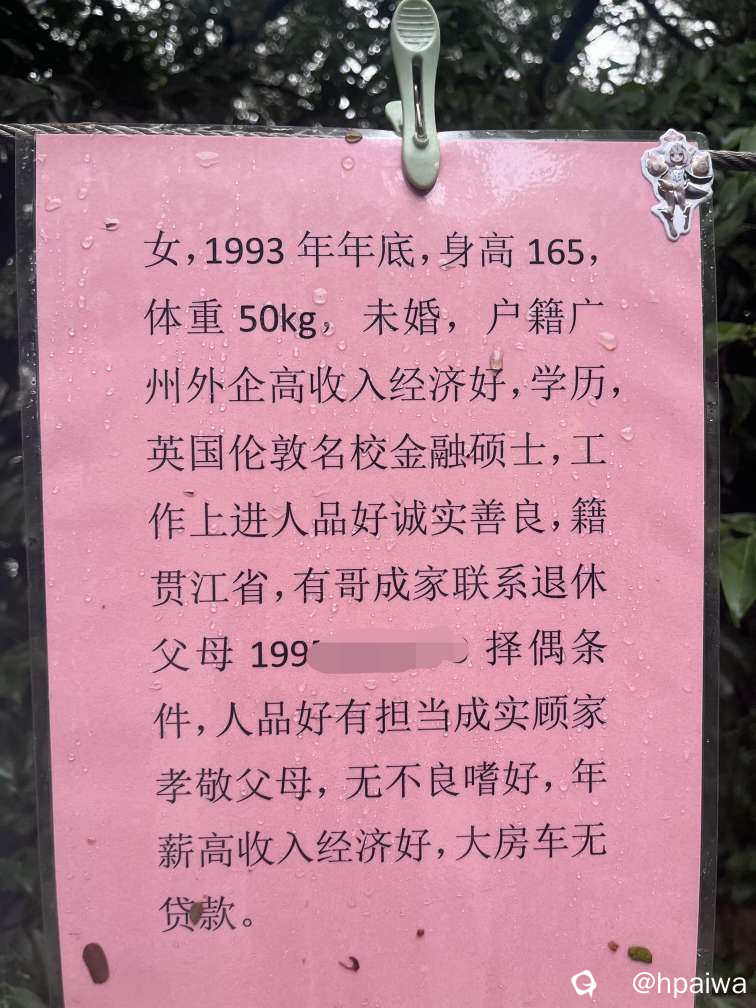 女，1993 年年底，身高 165，
体重 50kg， 未婚，户籍广
州外企高收入经济好，学历，
英国伦敦名校金融硕士，工
作上进人品好诚实善良，籍
贯江省，有哥成家联系退休
父母 199 择偶条
件，人品好有担当成实顾家
孝敬父母，无不良嗜好，年
薪高收入经济好，大房车无
贷款。
@hpaiwa